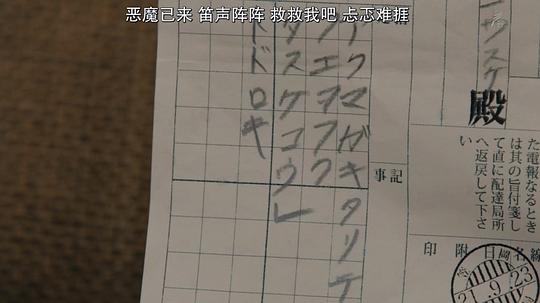 恶魔已来 笛声阵阵 救救我吧 忐忑难捱
サスケ
殿
た電報なるとき
は其の旨付箋し
て直に配達局所
へ返戻して下さ
い
記事
アクマガキタリテ
フエヲフク
タスケコウレ
トドロキ
印附日名線
21.9.23